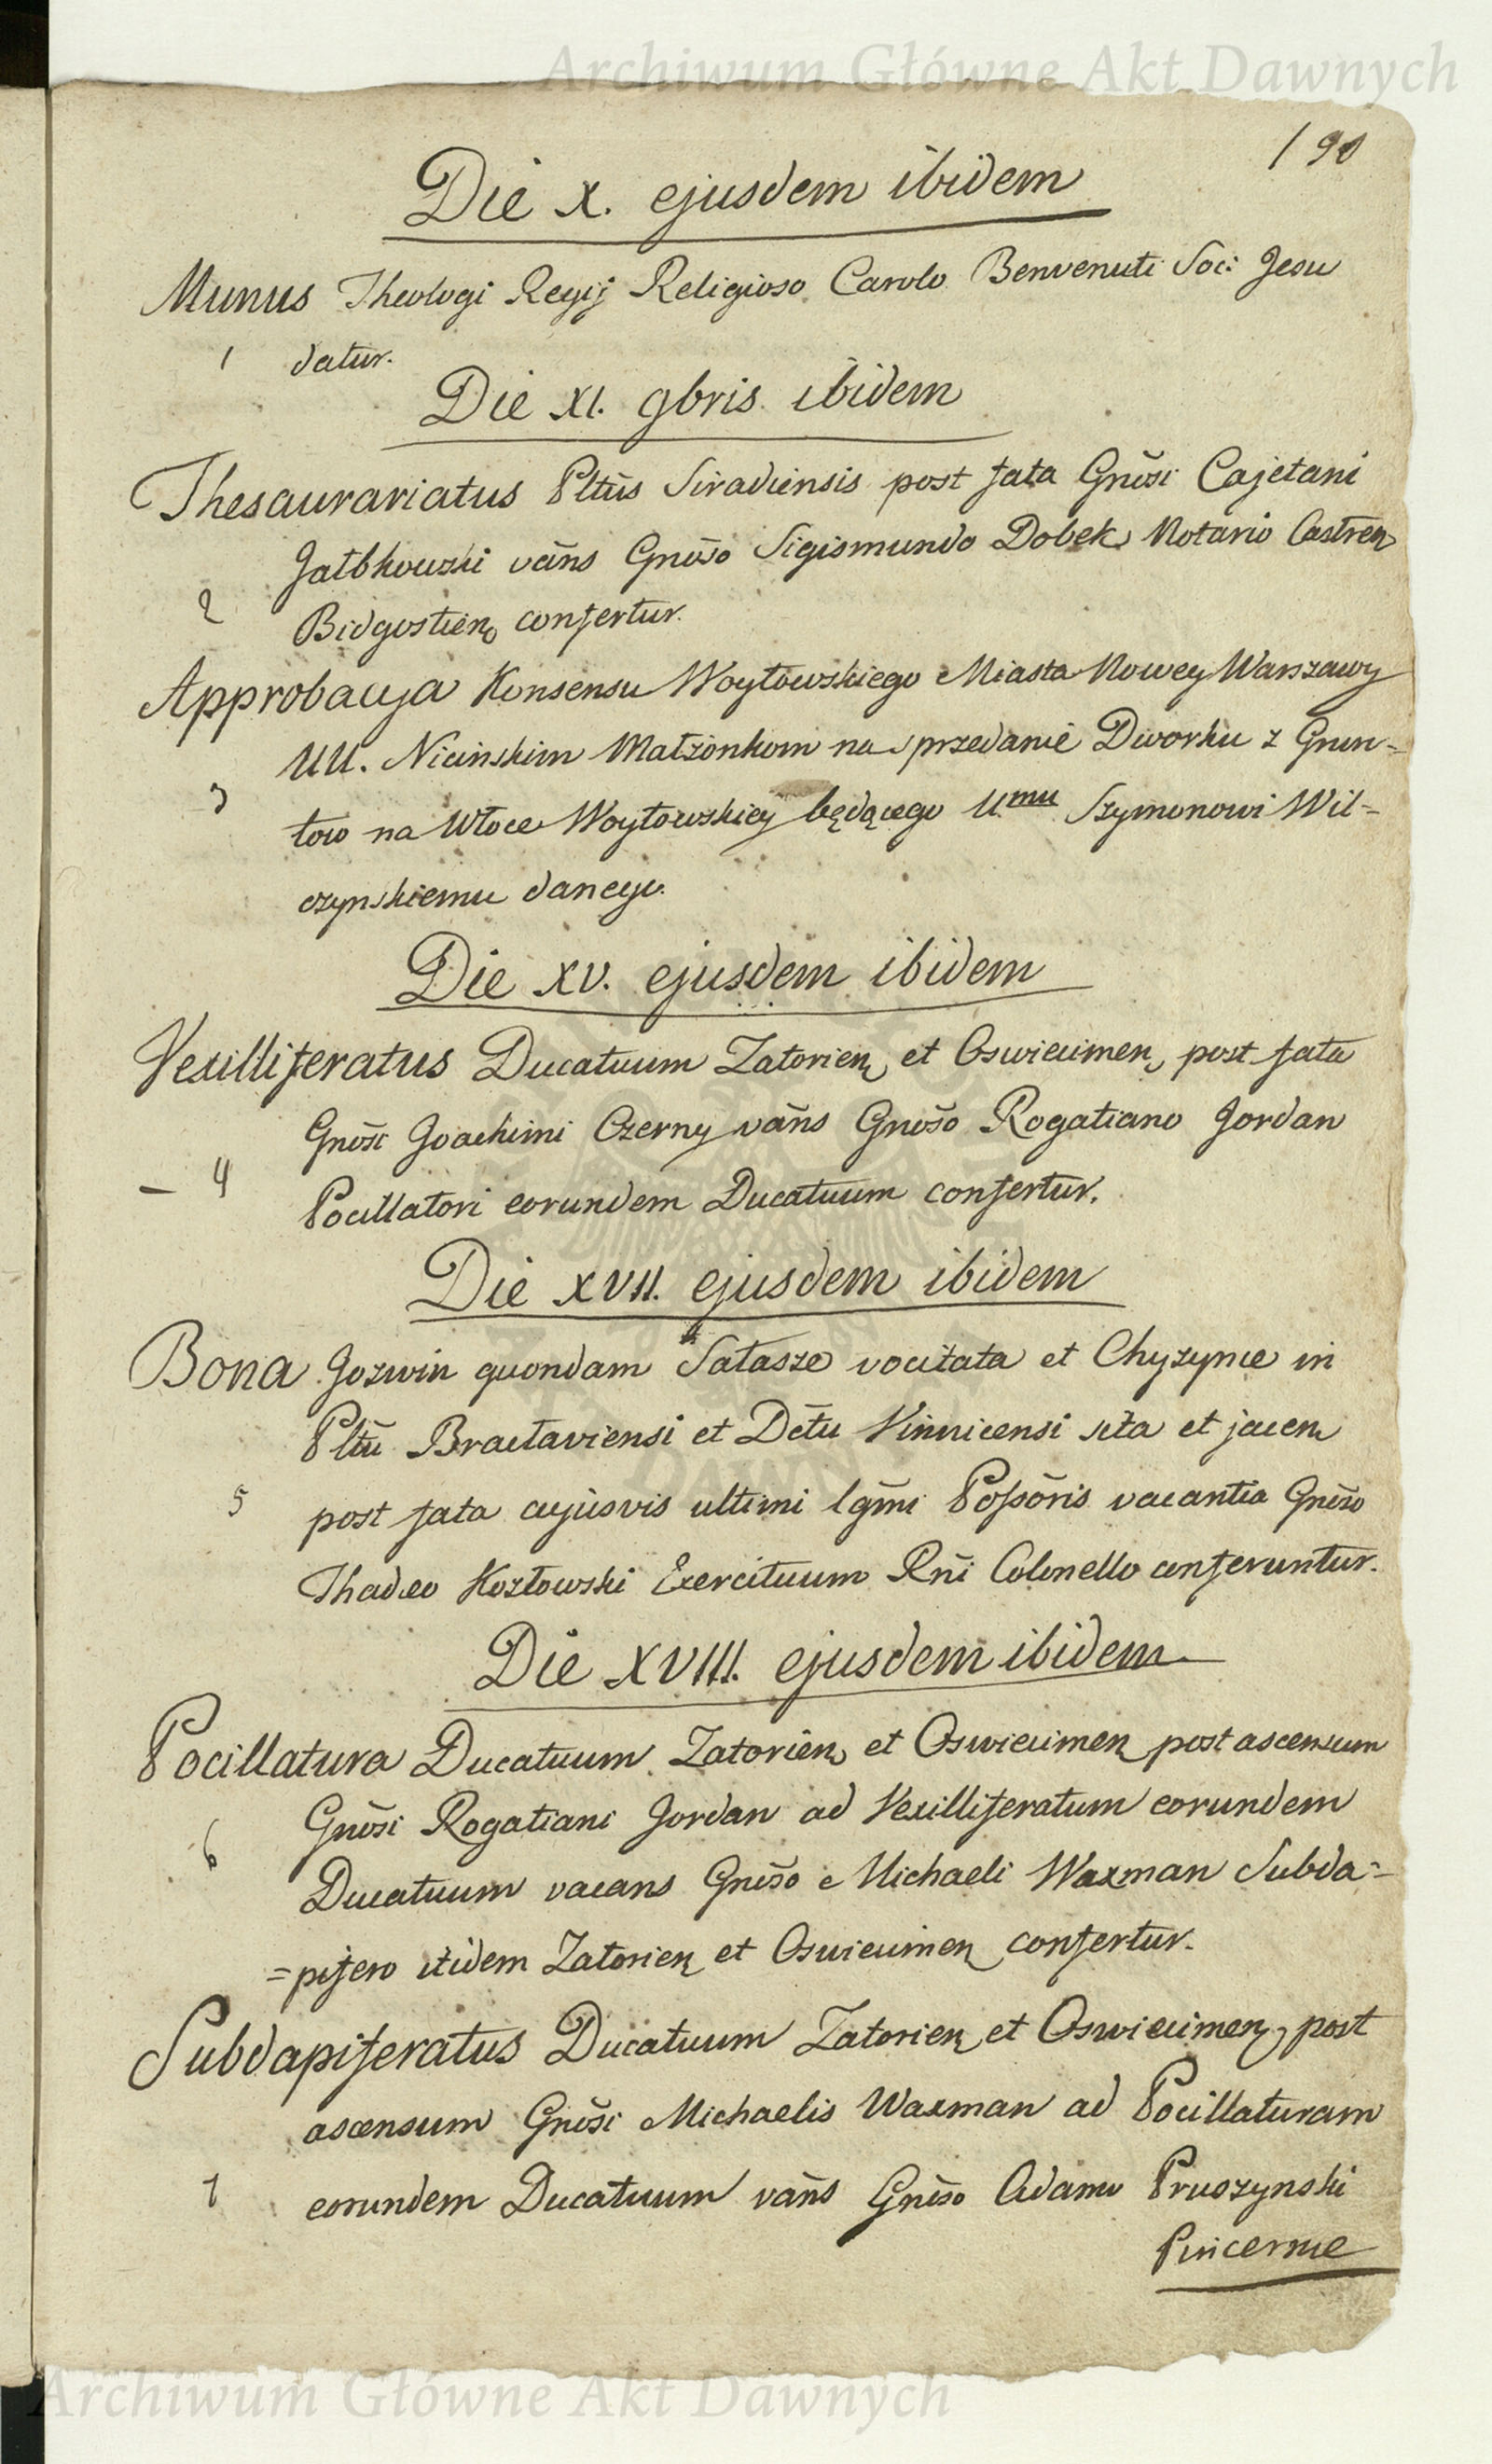 Archiwum Główne Akt Dawnych
190
Die X. ejusdem ibidem
Munus Theologi Regij Religioso Carolo Benvenuti Soc: Jesu
1 datur.
Die XI. 9bris ibidem
Thesaurariatus Pltūs Siradiensis post fata Gnōsi Cajetani
Jałbkowski vāns Gnōso Sigismundo Dobek Notario Castren
2 Bidgostien confertur.
Approbacya Konsensu Woytowskiego Miasta Nowey Warszawy
UU. Nicinskim Małżonkom na sprzedanie Dworku z Grun-
3 tow na Włoce Woytowskiey będącego Umu Szymonowi Wil-
czynskiemu danego.
Die XV. ejusdem ibidem
Vexilliferatus Ducatuum Zatorien et Oswiecimen, post fata
Gnōsi Joachimi Czerny vāns Gnōso Rogatiano Jordan
– 4 Pocillatori eorundem Ducatuum confertur.
Die XVII. ejusdem ibidem
Bona Jozwin quondam Sałasze vocitata et Chyzynie in
Pltū Bracłaviensi et Dētu Vinnicensi sita et jacen
5 post fata cujusvis ultimi lgīmi Poſsōris vacantia Gnōso
Thadeo Kozłowski Exercituum Rnī Colonello conferuntur.
Die XVIII. ejusdem ibidem
Pocillatura Ducatuum Zatorien et Oswiecimen post ascensum
Gnōsi Rogatiani Jordan ad Vexilliferatum eorundem
6 Ducatuum vacans Gnōso Michaeli Waxman Subda=
=pifero itidem Zatorien et Oswiecimen confertur.
Subdapiferatus Ducatuum Zatorien et Oswiecimen, post
ascensum Gnōsi Michaelis Waxman ad Pocillaturam
7 eorundem Ducatuum vāns Gnōso Adamo Pruszynski
Pincernae
Archiwum Główne Akt Dawnych